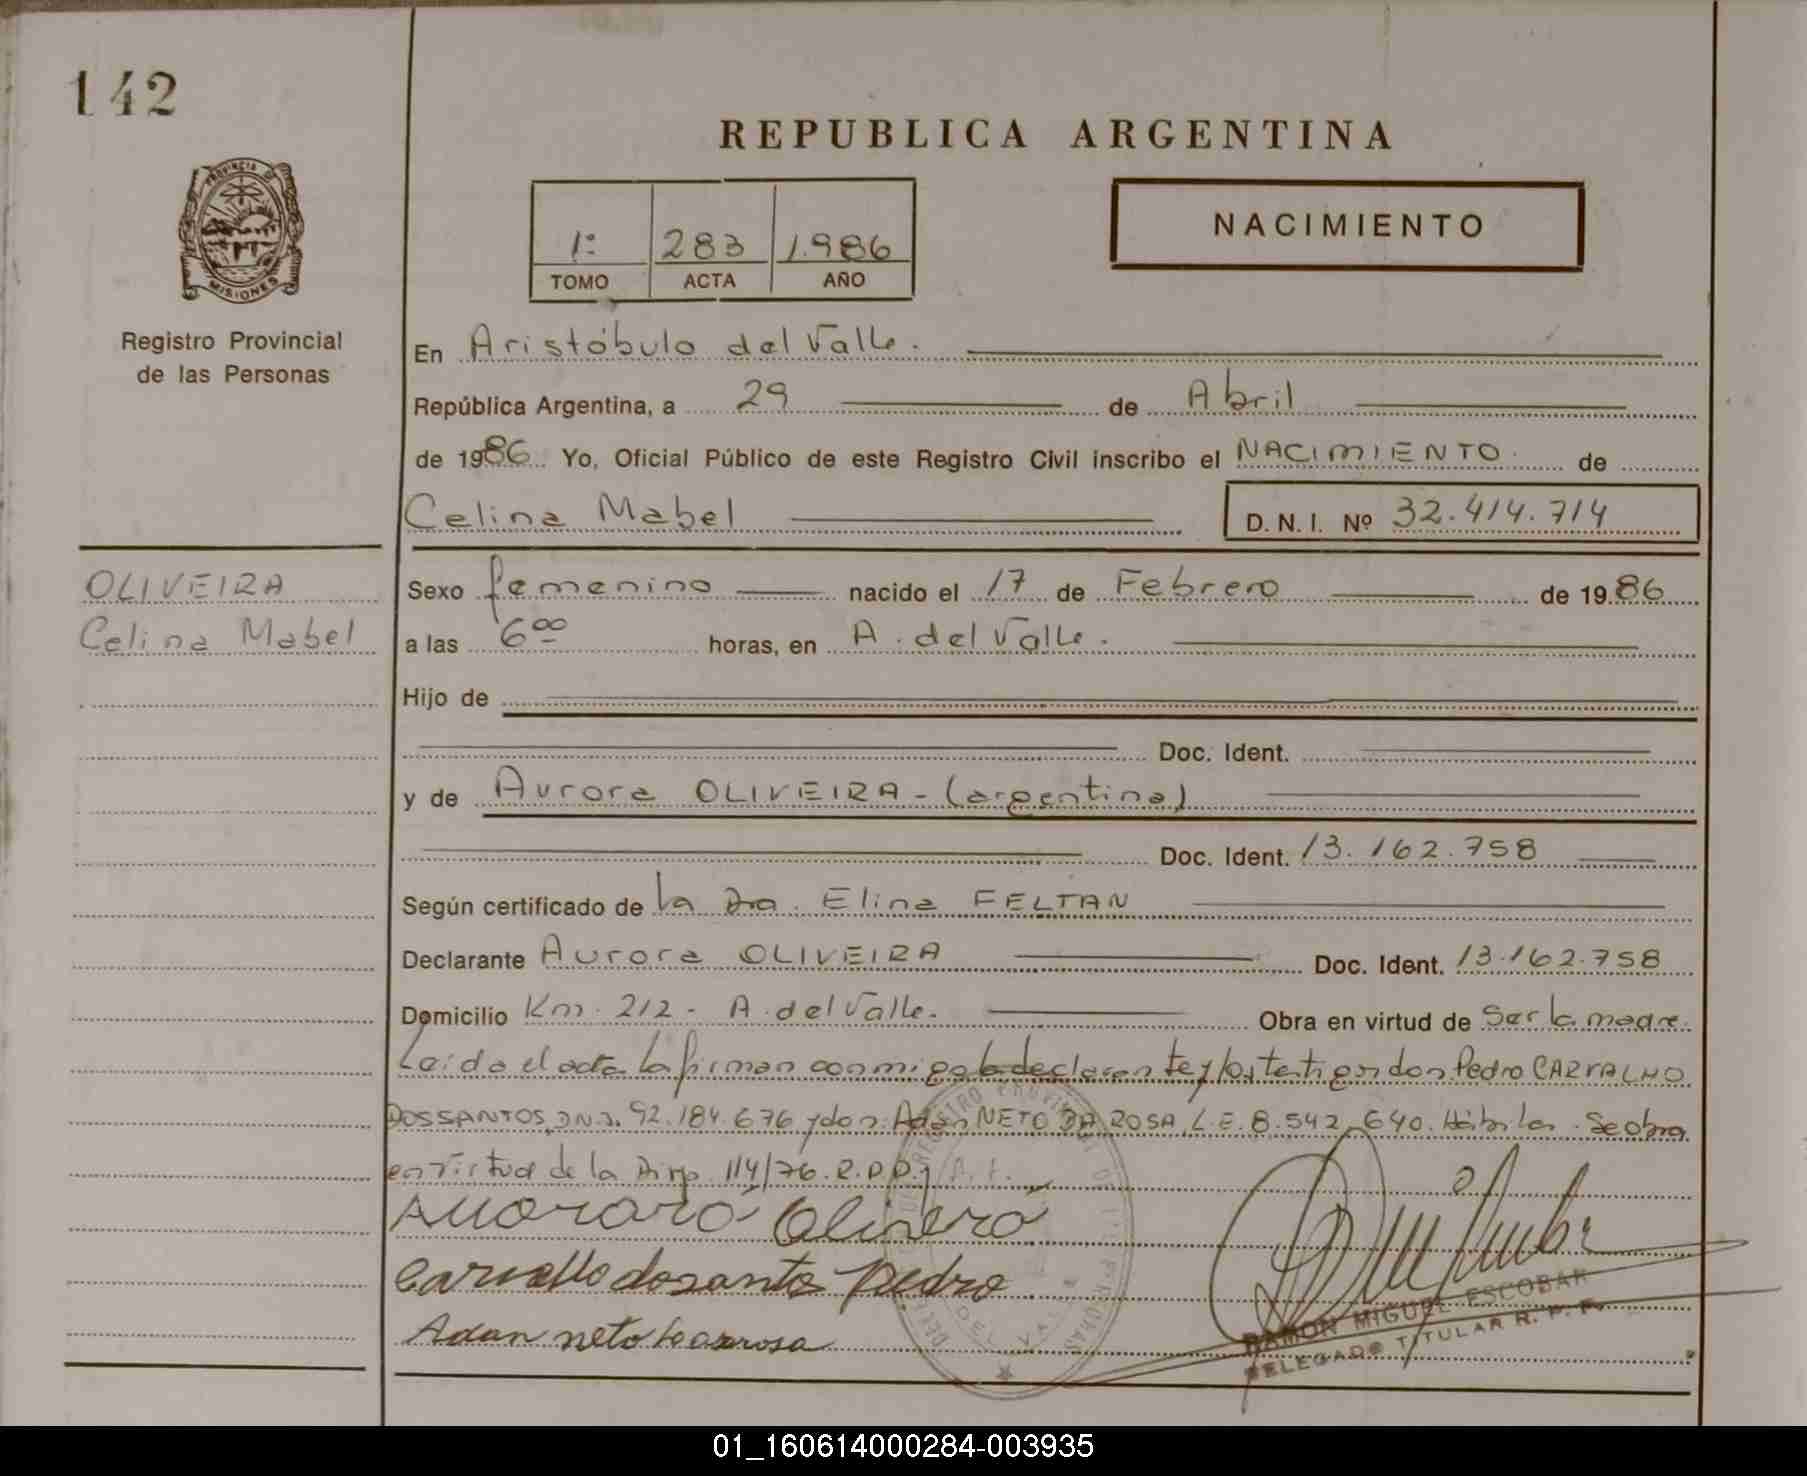 142
REPUBLICA ARGENTINA
PROVINCIA DE
MISIONES
Registro Provincial
de las Personas
1º 283 1.986
TOMO ACTA AÑO
NACIMIENTO
En Aristóbulo del Valle.
República Argentina, a 29 de Abril
de 1986 Yo, Oficial Público de este Registro Civil inscribo el NACIMIENTO de
Celina Mabel D. N. I. Nº 32.414.714
OLIVEIRA
Celina Mabel
Sexo femenino nacido el 17 de Febrero de 19 86
a las 6 00 horas, en A. del Valle.
Hijo de
Doc. Ident.
y de Aurora OLIVEIRA - (argentina)
Doc. Ident. 13.162.758
Según certificado de la Dra. Elina FELTAN
Declarante Aurora OLIVEIRA Doc. Ident. 13.162.758
Domicilio Km. 212 - A. del Valle. Obra en virtud de Ser la madre.
Leída el acta la firman conmigo la declarante y los testigos don Pedro CARVALHO
DOSSANTOS, D.N.I. 92.184.676 y don Adan NETO DA ROSA, L.E. 8.542.640. Hábiles. Se obra
en virtud de la Disp. 114/76. R.P.P.
Carvallo dosanto Pedro
Adan neto
RAMON MIGUEL ESCOBAR
DELEGADO TITULAR R. P. P.
01_160614000284-003935